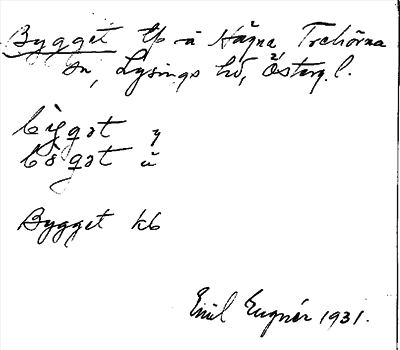 Bygget tp å Hägna, Trehörna
sn, Lysings hd, Östergl.
bìgget y
bö̀gget ü
Bygget kb
Emil Eugnér 1931.